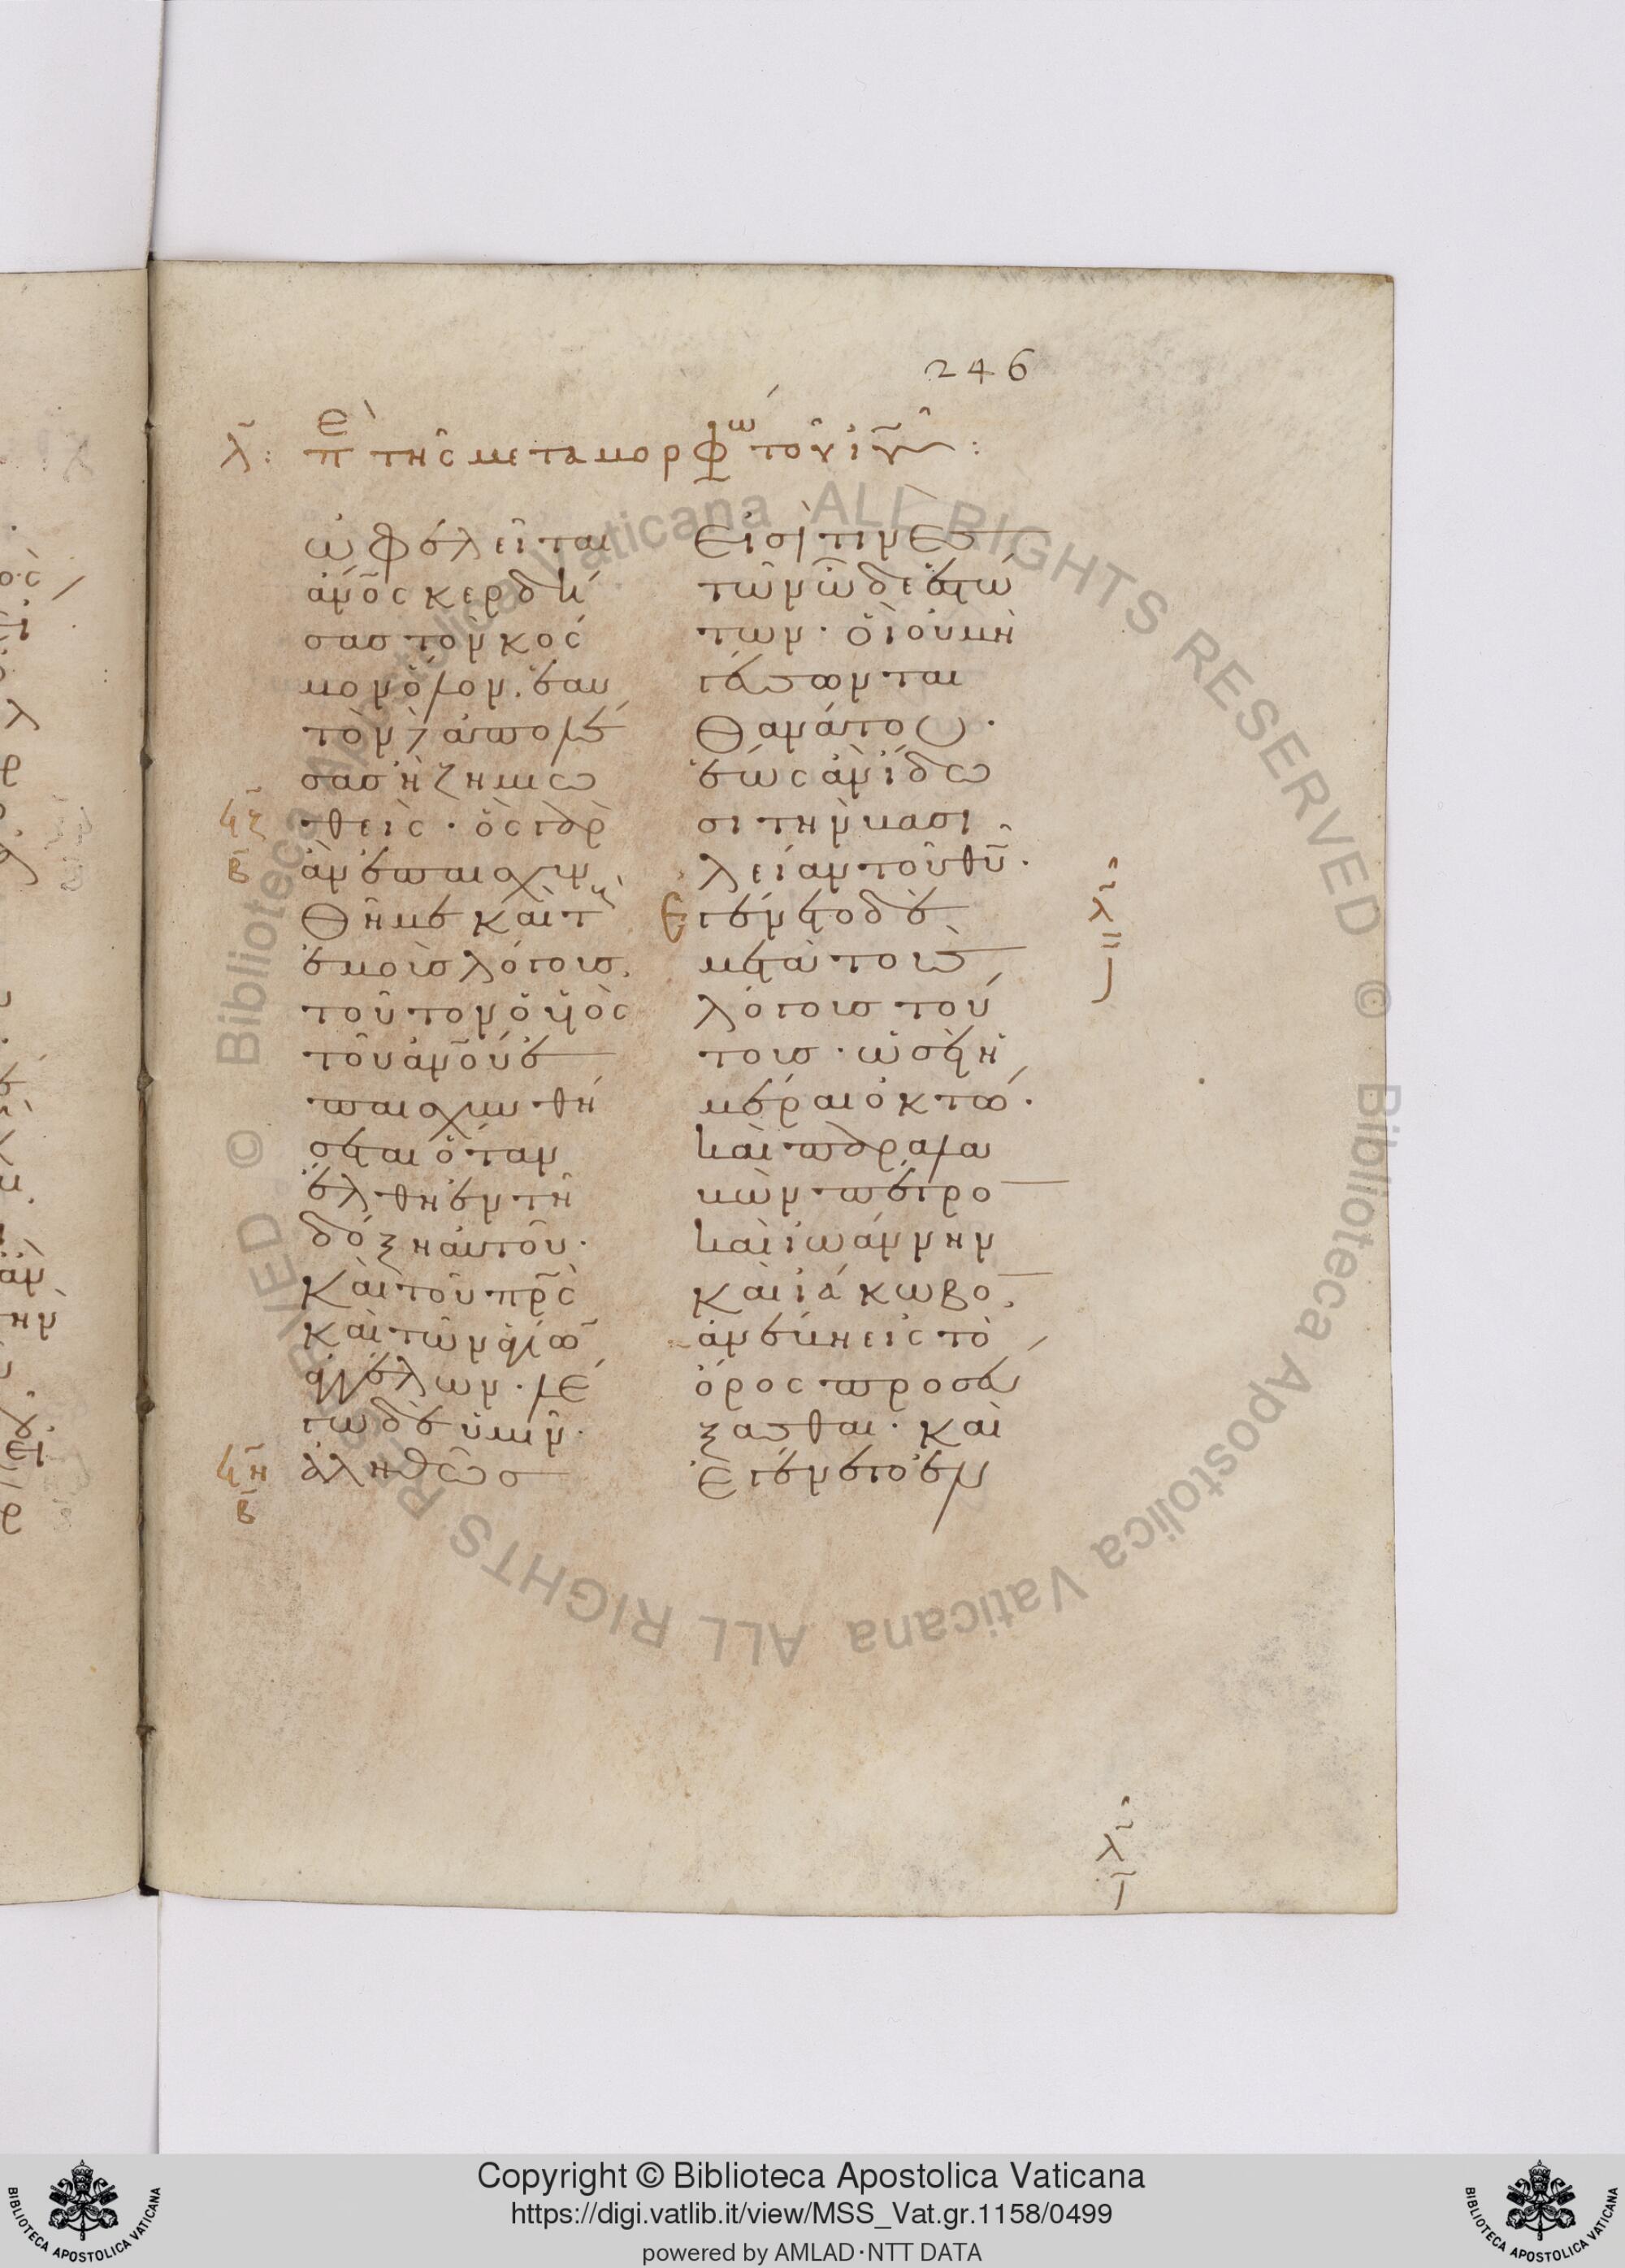 246
λ̅: πὲ τῆς μεταμορφώ τοῦ ἰ̅υ̅:
ὠφελεῖται
ἀν̅ο̅ς κερδή
σας τὸν κός
μον ὅλον. ἑαυ
τὸν δὲ ἀπολέ
σας ἢ ζημιω
θείς. ὃς γὰρ
ἂν ἐπαισχυν
θῆ με καὶ τοὺς
ἐμοὺς λόγους,
τοῦτον ὁ υἱὸς
τοῦ ἀν̅ο̅υ̅ ἐ
παισχυνθή
σεται ὅταν
ἔλθη ἐν τῆ
δόξη αὐτοῦ.
Καὶ τοῦ π̅ρ̅ς̅
καὶ τῶν ἁγίω̅
ἀγγέλων. λέ
γω δὲ ὑμῖν.
ἀληθῶς
ϟζ
β
ϟη
β
εἰσί τινες
τῶν ὧδε ἑστώ
των. οἳ οὐ μὴ
γεύσωνται
θανάτου.
ἕως ἂν ἴδω
σι τὴν βασι
λείαν τοῦ θ̅υ̅.
Ἐγένετο δὲ
μετὰ τοὺς
λόγους τού
τους. ὡσεὶ ἡ
μέραι ὀκτώ.
καὶ παραλα
βὼν πέτρο̅
καὶ ἰωάννην
καὶ ἰάκωβο̅,
ἀνέβη εἰς τὸ
ὄρος προσεύ
ξασθαι. καὶ
ἐγένετο ἐν
Copyright © Biblioteca Apostolica Vaticana
https://digi.vatlib.it/view/MSS_Vat.gr.1158/0499
powered by AMLAD·NTT DATA
BIBLIOTECA APOSTOLICA VATICANA
BIBLIOTECA APOSTOLICA VATICANA
Biblioteca Apostolica Vaticana ALL RIGHTS RESERVED © Biblioteca Apostolica Vaticana ALL RIGHTS RESERVED ©